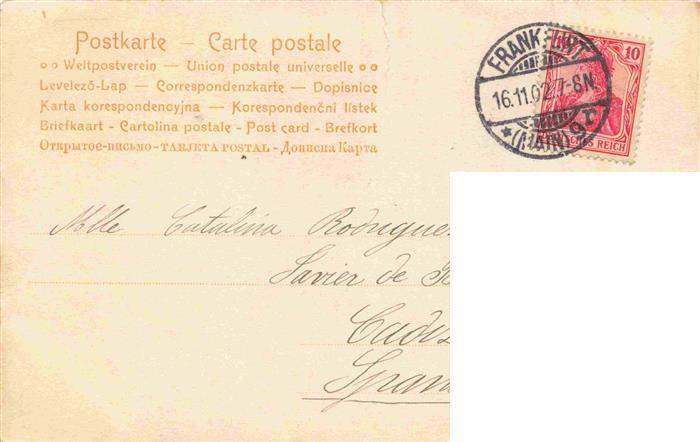 Postkarte — Carte postale
Weltpostverein — Union postale universelle
Levelező-Lap — Correspondenzkarte — Dopisnice
Karta korespondencyjna — Korespondenční lístek
Briefkaart - Cartolina postale - Post card - Brefkort
Открытое-письмо - TARJETA POSTAL - Дописна Карта
FRANKFURT
16.11.02. 7-8N.
* (MAIN) 9r
10
REICH
Mlle Catalina
Javier de
Cadiz